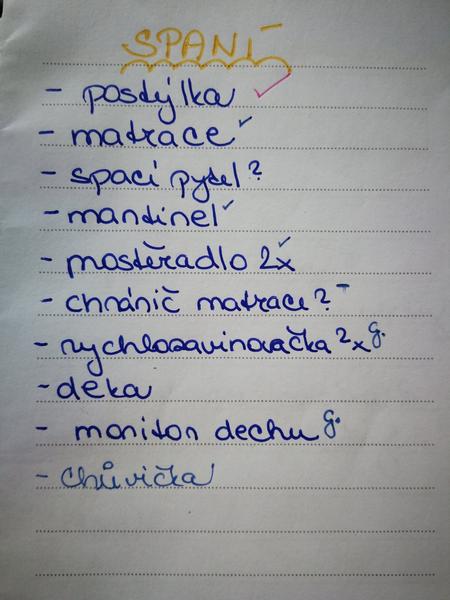 SPANÍ
- postýlka ✓
- matrace ✓
- spací pytel?
- mantinel ✓
- prostěradlo 2x ✓
- chránič matrace? -
- rychlozavinovačka 2x g.
- deka
- monitor dechu g.
- chůvička